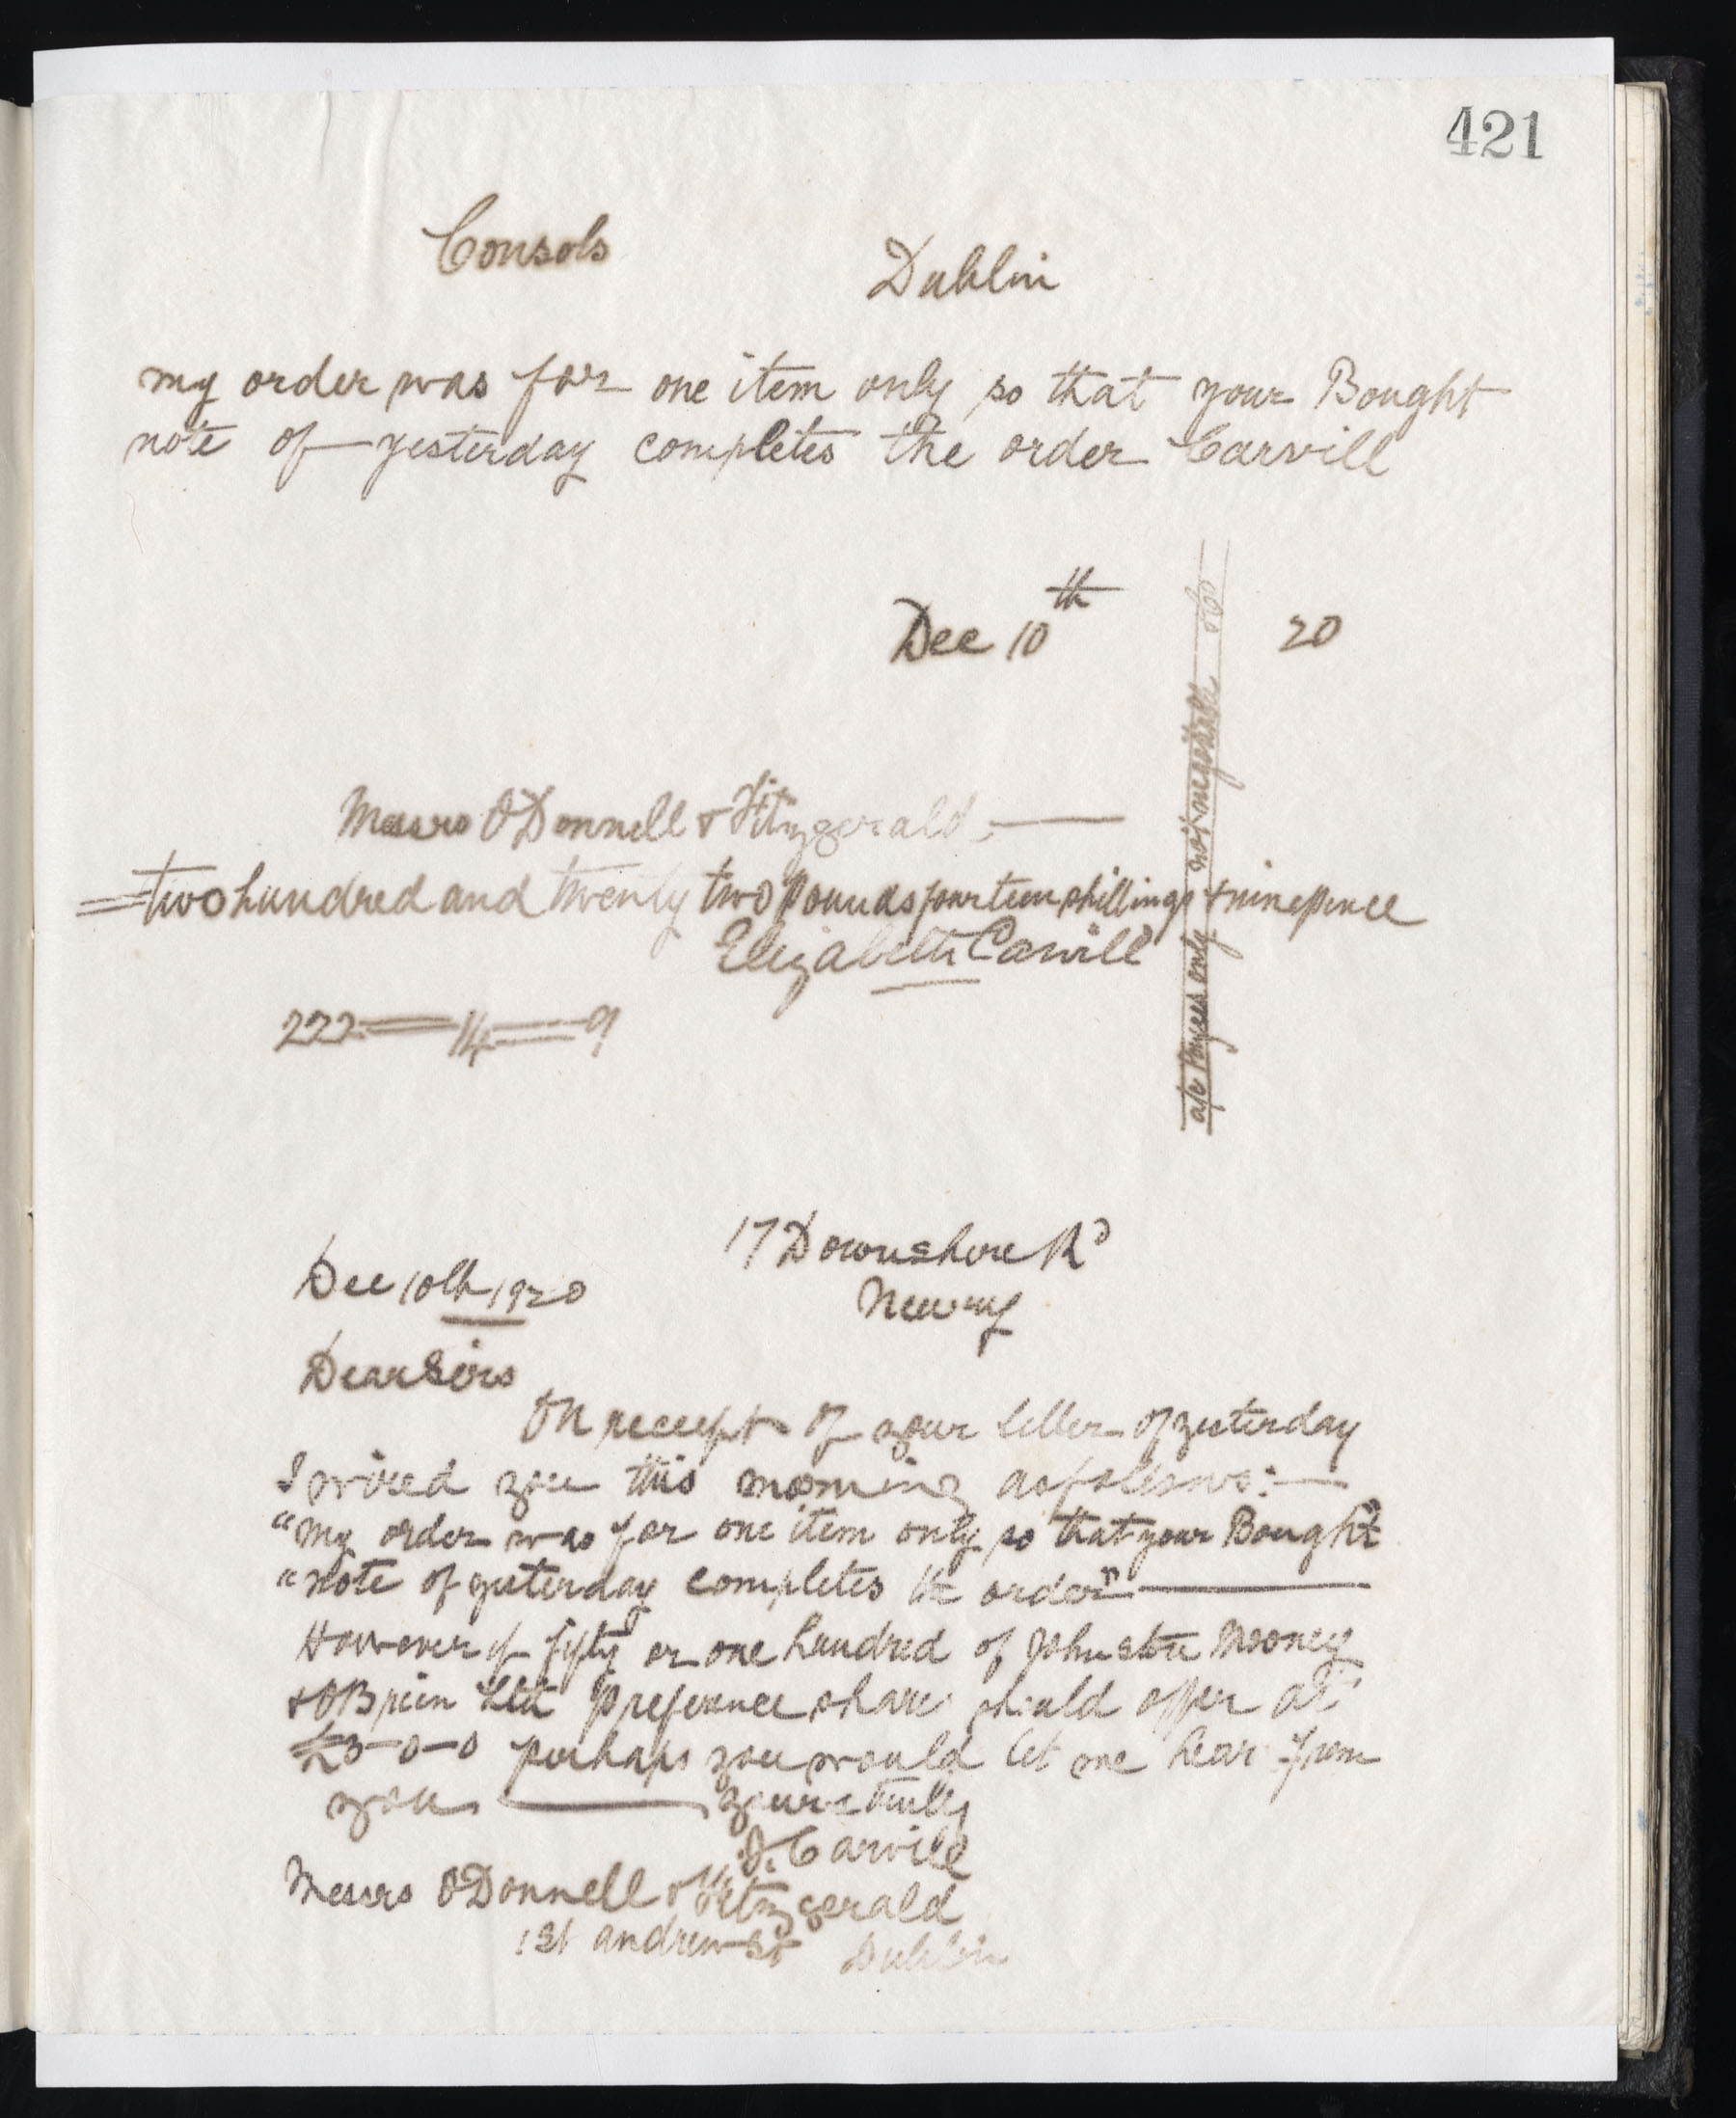 421
Consols
Dublin
my order was for one item only so that your Bought
note of yesterday completes the order Carvill
Dec 10th 20
a/c Payees only not negotiable & Co
Messrs O'Donnell & Fitzgerald
two hundred and twenty two pounds fourteen shillings & ninepence
Elizabeth Carvill
222 = 14 = 9
17 Downshire Rd
Dec 10th 1920
Newry
Dear Sirs
On receipt of your letter of yesterday
I wired you this morning as follows:—
"My order was for one item only so that your Bought
"note of yesterday completes the order"
However if fifty or one hundred of Johnston Mooney
& OBrien Ltd Preference share should offer at
£3-0-0 perhaps you would let me hear from
you yours truly
J. Carvill
Messrs O'Donnell & Fitzgerald
1 St Andrew St Dublin